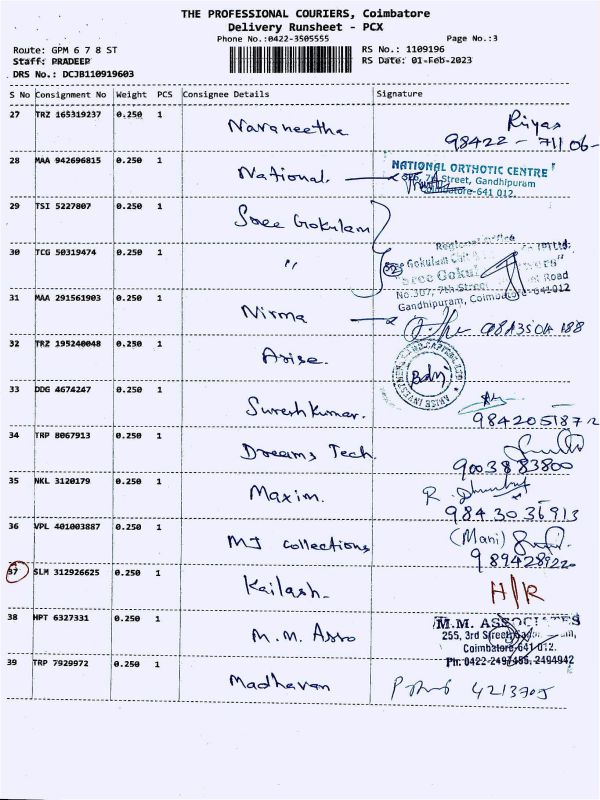 THE PROFESSIONAL COURIERS, Coimbatore
Delivery Runsheet - PCX
Phone No.:0422-3505555
Page No.:3
Route: GPM 6 7 8 ST
RS No.: 1109196
Staff: PRADEEP
RS Date: 01-Feb-2023
DRS No.: DCJB110919603
S No Consignment No Weight PCS Consignee Details Signature
27 TRZ 165319237 0.250 1 Navaneetha Riyas
98422 - 71106-
28 MAA 942696815 0.250 1 National. NATIONAL ORTHOTIC CENTRE
Street, Gandhipuram
Coimbatore-641 012.
29 TSI 5227807 0.250 1 Sree Gokulam
Regional Office
30 TCG 50319474 0.250 1 "
Sree Gokul
No.307, 7th Street Road
Gandhipuram, Coimbatore-641012
31 MAA 291561903 0.250 1 Nirma
32 TRZ 195240048 0.250 1 Arise.
33 DDG 4674247 0.250 1 Sureshkumar.
34 TRP 8067913 0.250 1 Dreams Tech.
9003883800
35 NKL 3120179 0.250 1 Maxim. R.
98430 36913
36 VPL 401003887 0.250 1 MJ collections (Mani)
9894289220
37 SLM 312926625 0.250 1 Kailash. H/R
38 HPT 6327331 0.250 1 M.M. Asso M.M. ASSOCIATES
255, 3rd Street,
Coimbatore-641 012.
Ph: 0422-2497486, 2494942
39 TRP 7929972 0.250 1 Madhavan 4213705